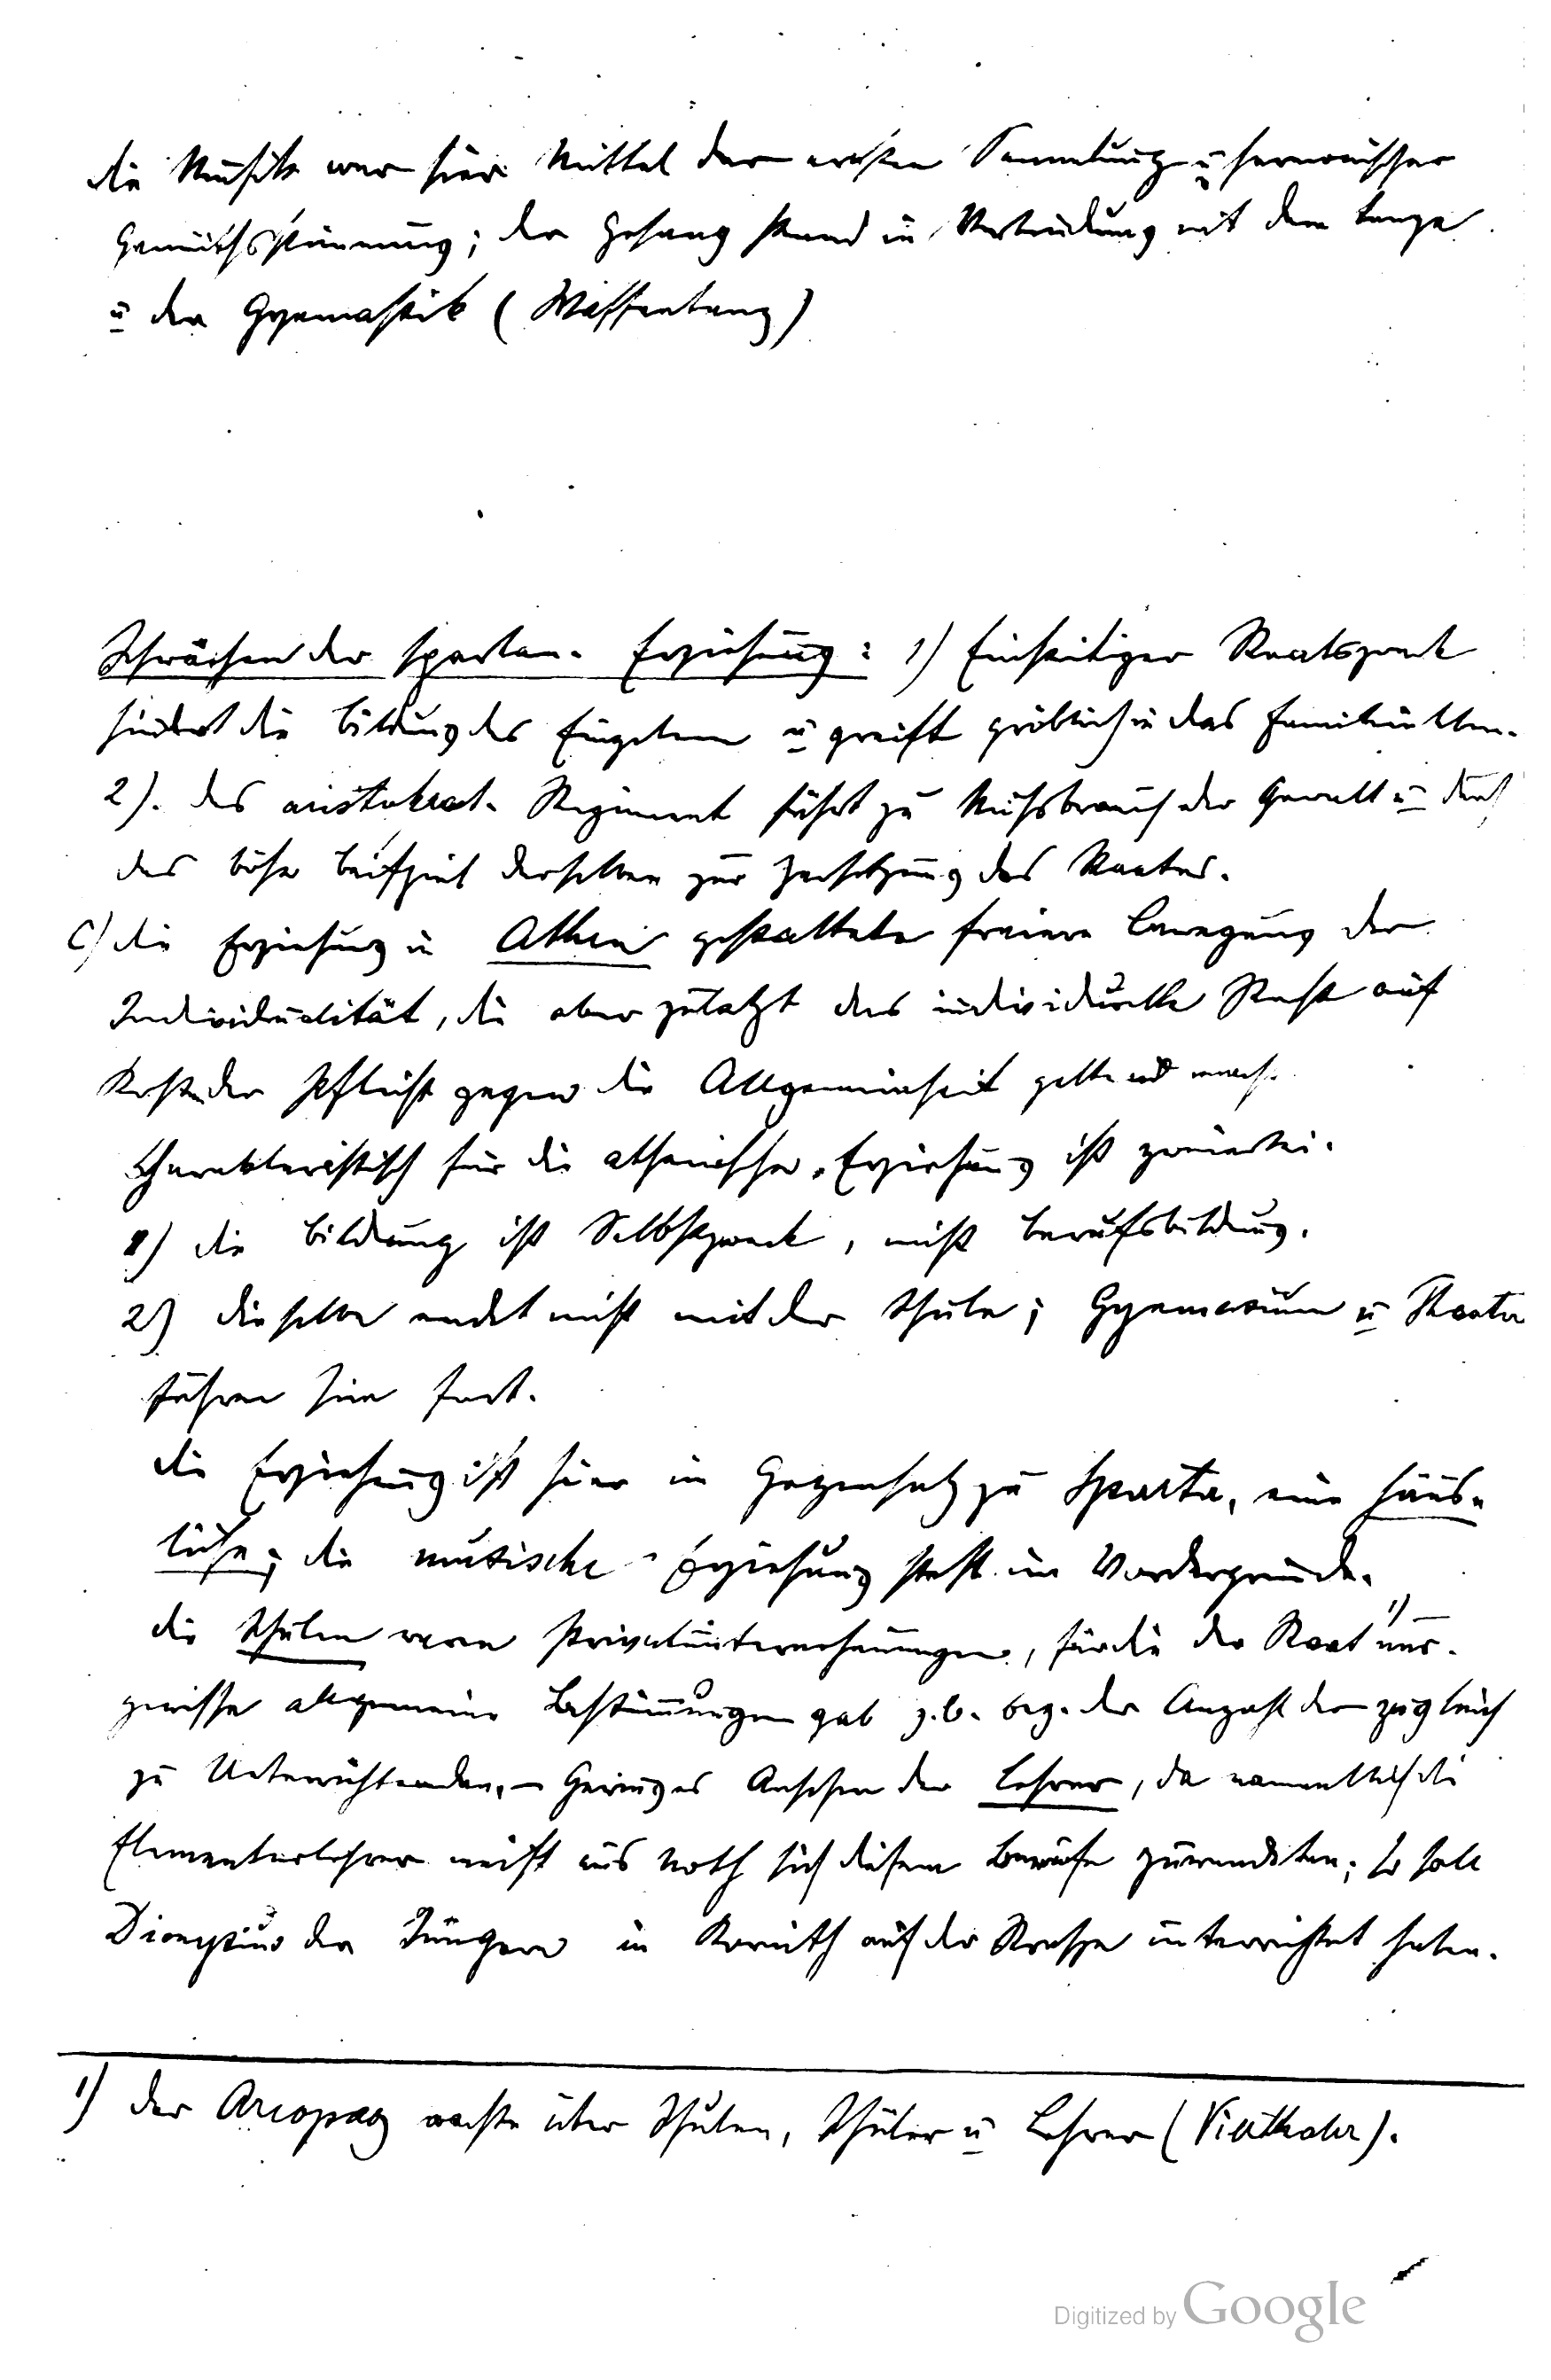 die Musik war hier Mittel der ersten Sammlung u harmonischer
Gemüthsstimmung; der Gesang stand in Verbindung mit dem Tanze
u der Gymnastik (Waffentanz)
Schwächen der spartan. Erziehung: 1) Einseitiger Staatszweck
hindert die Bildung des Einzelnen u greift gröblich in das Familienleben.
2). das aristokrat. Regiment führt zu Missbrauch der Gewalt u durch
das böse Beispiel derselben zur Zersetzung des Staates.
C) die Erziehung in Athen gestattete freiere Bewegung der
Individualität, die aber zuletzt das individuelle Recht auf
Kosten der Pflicht gegen die Allgemeinheit geltend macht.
Charakteristisch für die athenische Erziehung ist zweierlei.
1) die Bildung ist Selbstzweck, nicht Berufsbildung.
2) dieselbe endet nicht mit der Schule; Gymnasium u Theater
führen sie fort.
die Erziehung ist hier im Gegensatz zu Sparta, eine häus-
liche; die musische Erziehung steht im Vordergrunde.
die Schulen waren Privatunternehmungen, für die der Staat 1) nur
gewisse allgemeine Bestimmungen gab z.b. bez. der Anzahl der zugleich
zu Unterrichtenden. – Geringes Ansehen der Lehrer, da namentlich die
Elementarlehrer meist aus Noth sich diesem Berufe zuwendeten; so soll
Dionysius der Jüngere in Korinth auf der Strasse unterrichtet haben.
1) der Areopag wachte über Schulen, Schüler u Lehrer (Vierthaler).
Digitized by Google